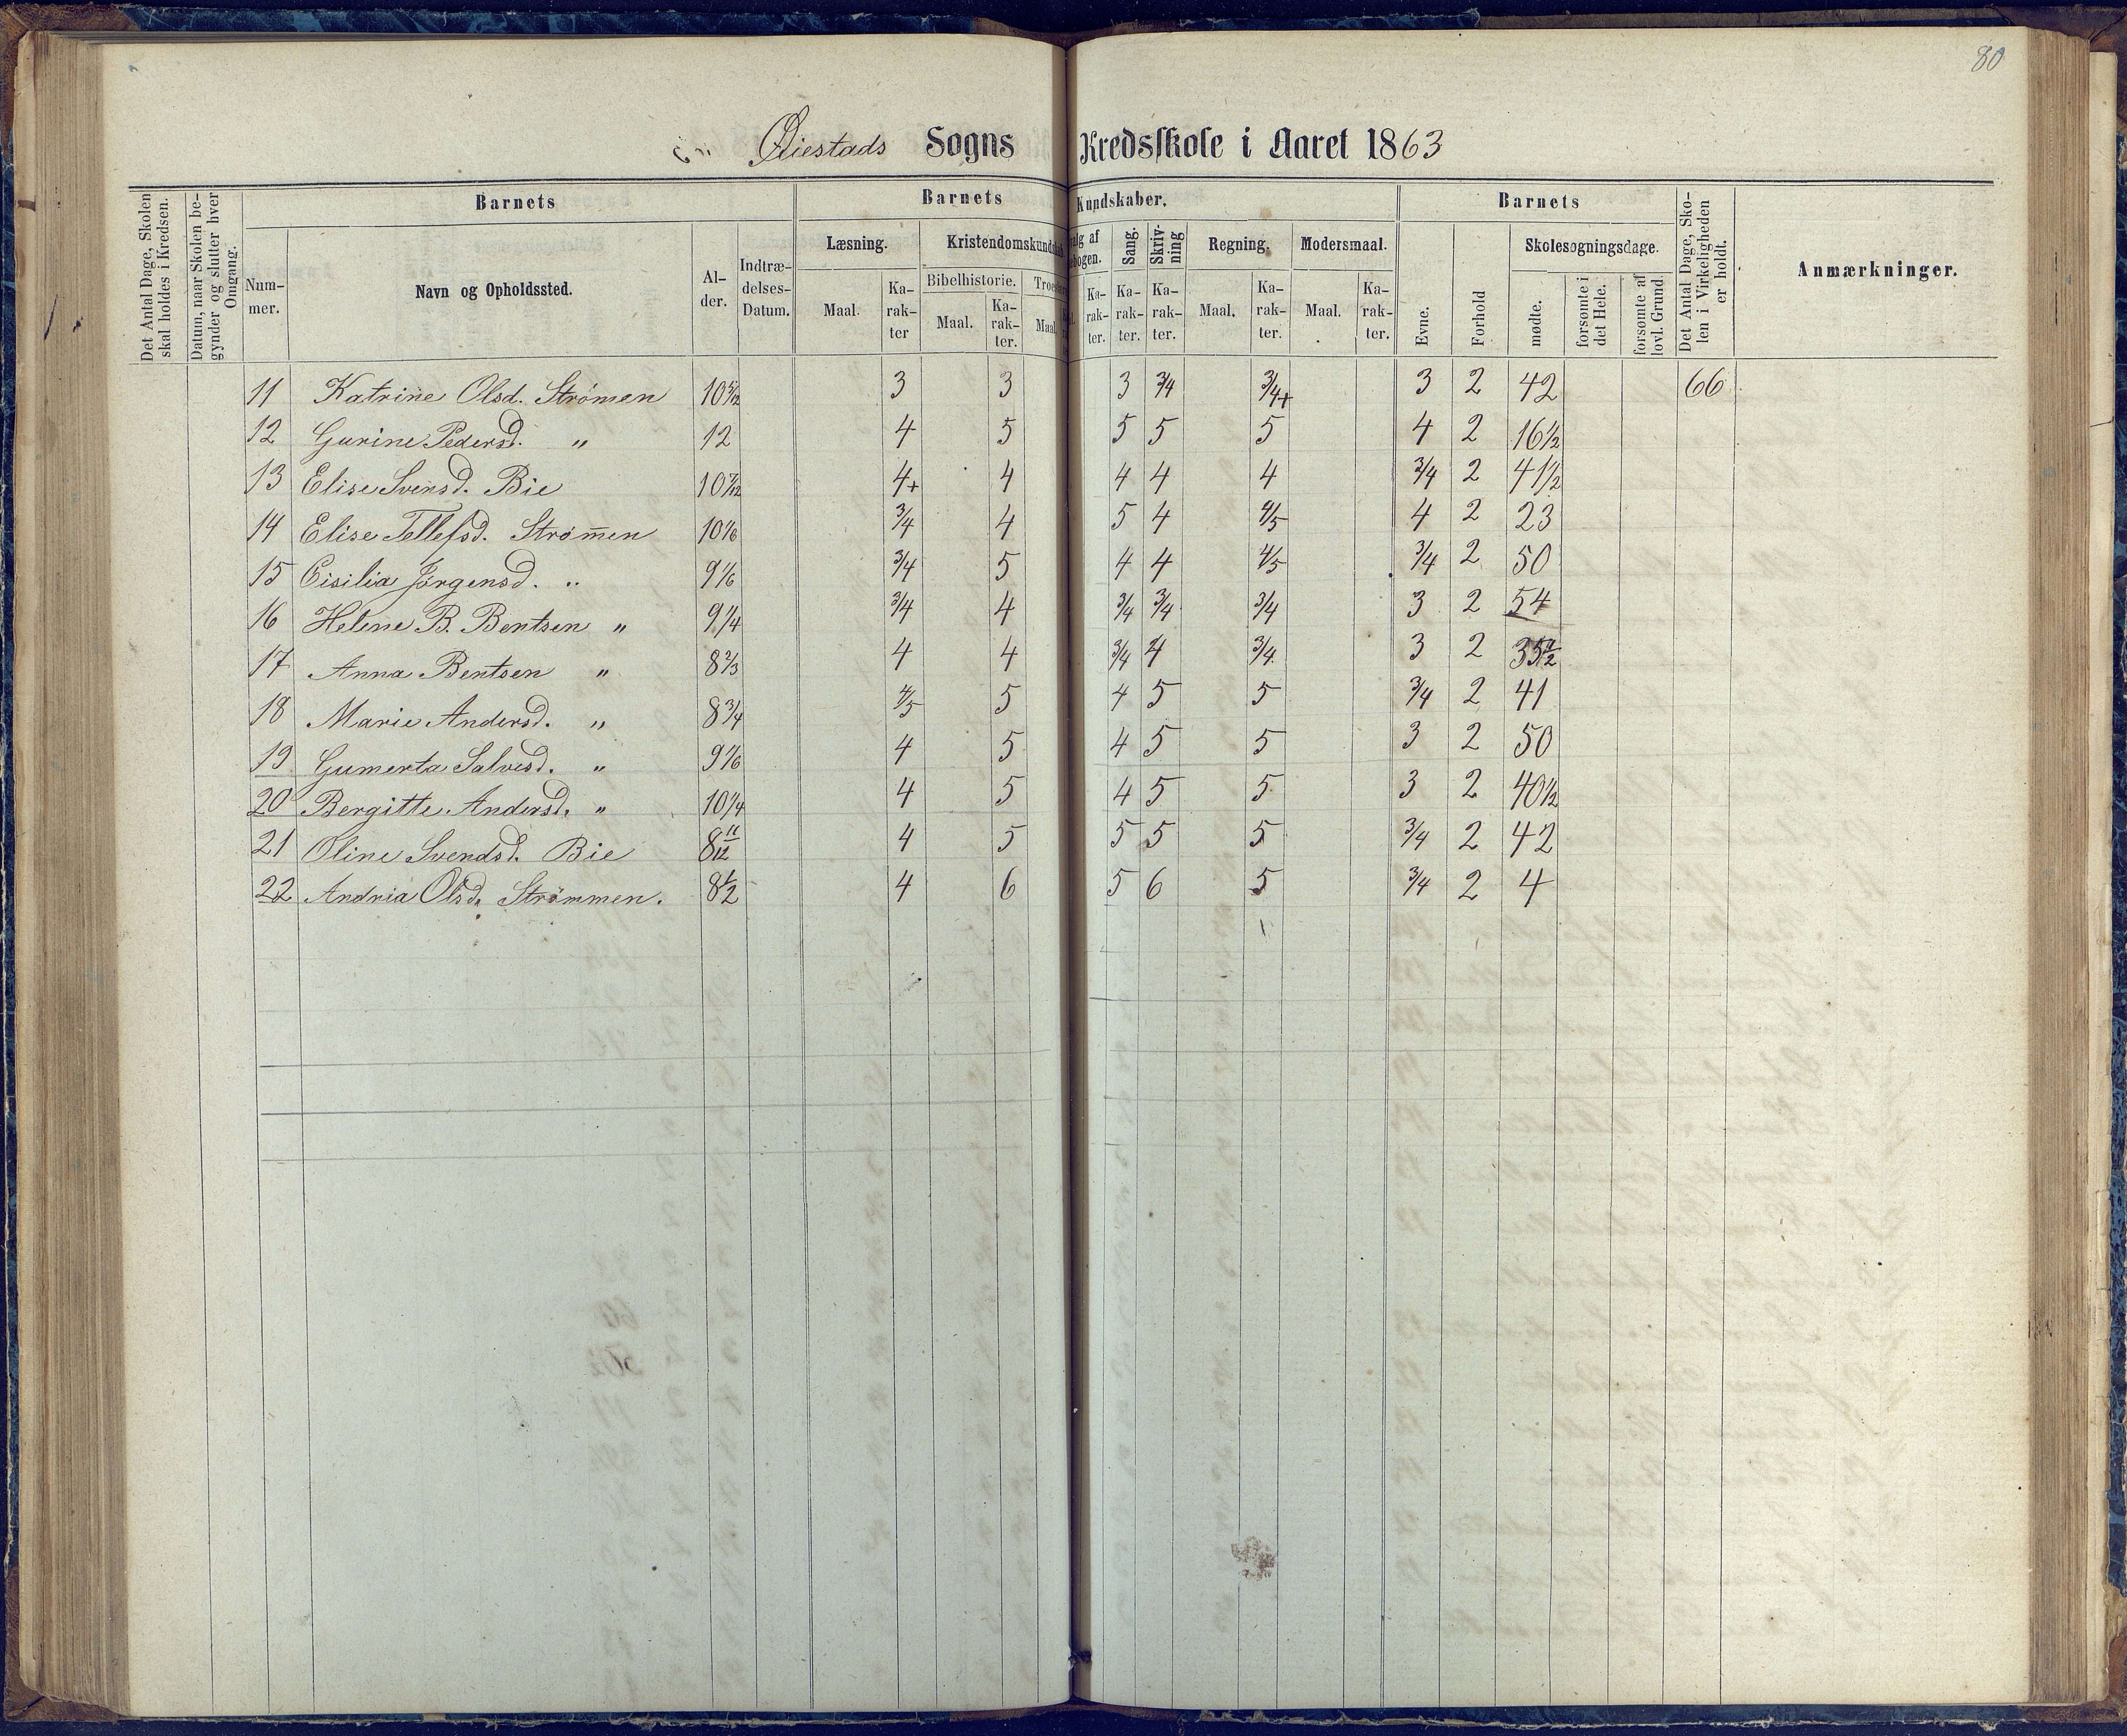 80
Øiestads Sogns Kredsskole i Aaret 1863
Det Antal Dage, Skolen skal holdes i Kredsen.
Datum, naar Skolen begynder og slutter hver Omgang.
Barnets
Barnets Kundskaber.
Barnets
Det Antal Dage, Skolen i Virkeligheden er holdt.
Anmærkninger.
Nummer.
Navn og Opholdssted.
Alder.
Indtrædelses-Datum.
Læsning.
Kristendomskundskab
Sang.
Skrivning
Regning.
Modersmaal.
Evne.
Forhold
Skolesøgningsdage.
Bibelhistorie.
Maal. Karakter
Maal. Karakter.
Maal.
Karakter. Karakter. Karakter.
Maal. Karakter.
Maal. Karakter.
mødte.
forsømte i det Hele.
forsømte af lovl. Grund.
11 Katrine Olsd. Strømen 10 5/12 3 3 3 3/4 3/4+ 3 2 42 66
12 Gurine Pedersd. " 12 4 5 5 5 5 4 2 16 1/2
13 Elise Svensd. Bie 10 7/12 4+ 4 4 4 4 3/4 2 41 1/2
14 Elise Tellefsd. Strømmen 10 1/6 3/4 4 5 4 4/5 4 2 23
15 Cisilia Jørgensd. " 9 1/6 3/4 5 4 4 4/5 3/4 2 50
16 Helene B. Bentsen " 9 1/4 3/4 4 3/4 3/4 3/4 3 2 54
17 Anna Bentsen " 8 2/3 4 4 3/4 4 3/4 3 2 35 1/2
18 Marie Andersd. " 8 3/4 4/5 5 4 5 5 3/4 2 41
19 Gumerta Salvesd. " 9 1/6 4 5 4 5 5 3 2 50
20 Bergitte Andersd. " 10 1/4 4 5 4 5 5 3 2 40 1/2
21 Oline Svendsd. Bie 8 11/12 4 5 5 5 5 3/4 2 42
22 Andria Olsd. Strømmen. 8 1/2 4 6 5 6 5 3/4 2 4